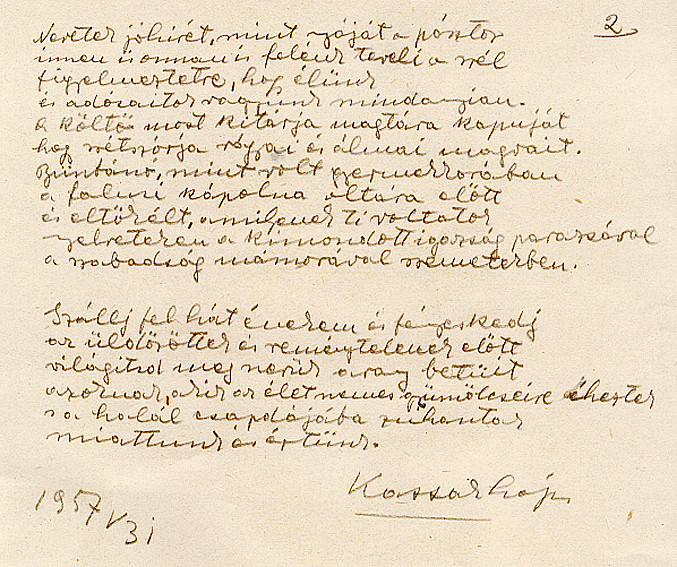 2
Nevetek jóhirét, mint nyáját a pásztor
innen is onnan is felénk tereli a szél
figyelmeztetve, hogy élünk
és adósaitok vagyunk mindanyian.
a költő most kitárja magtára kapuját
hogy szétszórja vágyai és álmai magvait.
Bűnbánó, mint volt gyermekkorában
a falusi kápolna oltára előtt
és eltökélt, amilyenek ti voltatok
nyelveteken a kimondott igazság parazsával
a szabadság mámorával szemetekben.
Szállj fel hát énekem és fényeskedj
az üldözöttek és reménytelenek előtt
világitsd meg nevük arany betüit
azoknak, akik az élet nemes gyümölcseire éheztek
s a halál csapdájába zuhantak
miattunk és értünk.
Kassák Lajos
1957 V 31